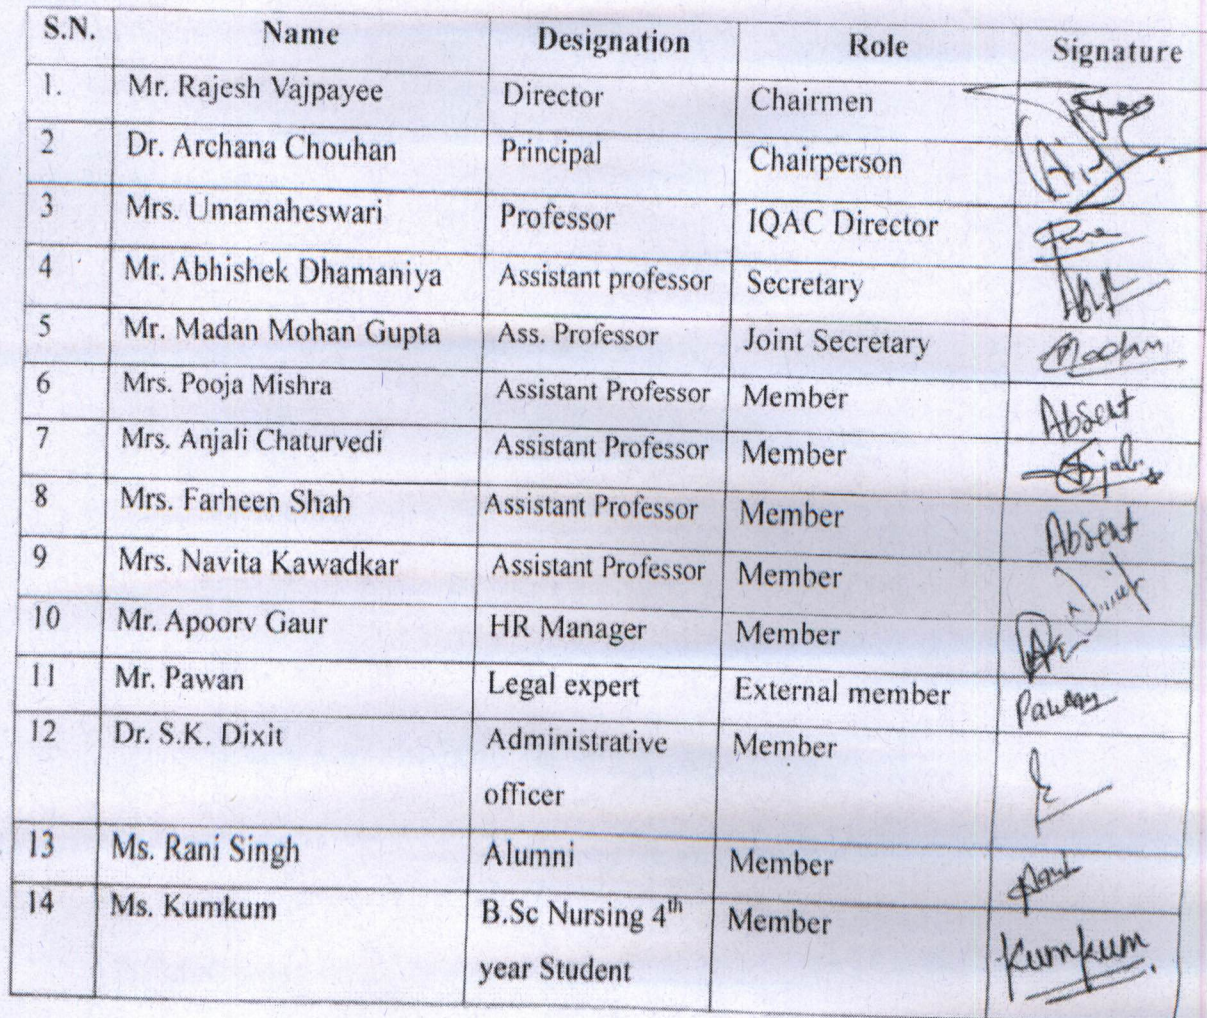 S.N. Name Designation Role Signature
1. Mr. Rajesh Vajpayee Director Chairmen
2 Dr. Archana Chouhan Principal Chairperson
3 Mrs. Umamaheswari Professor IQAC Director
4 Mr. Abhishek Dhamaniya Assistant professor Secretary
5 Mr. Madan Mohan Gupta Ass. Professor Joint Secretary Madan
6 Mrs. Pooja Mishra Assistant Professor Member Absent
7 Mrs. Anjali Chaturvedi Assistant Professor Member
8 Mrs. Farheen Shah Assistant Professor Member Absent
9 Mrs. Navita Kawadkar Assistant Professor Member
10 Mr. Apoorv Gaur HR Manager Member
11 Mr. Pawan Legal expert External member Pawan
12 Dr. S.K. Dixit Administrative Member
officer
13 Ms. Rani Singh Alumni Member
14 Ms. Kumkum B.Sc Nursing 4th Member Kumkum
year Student